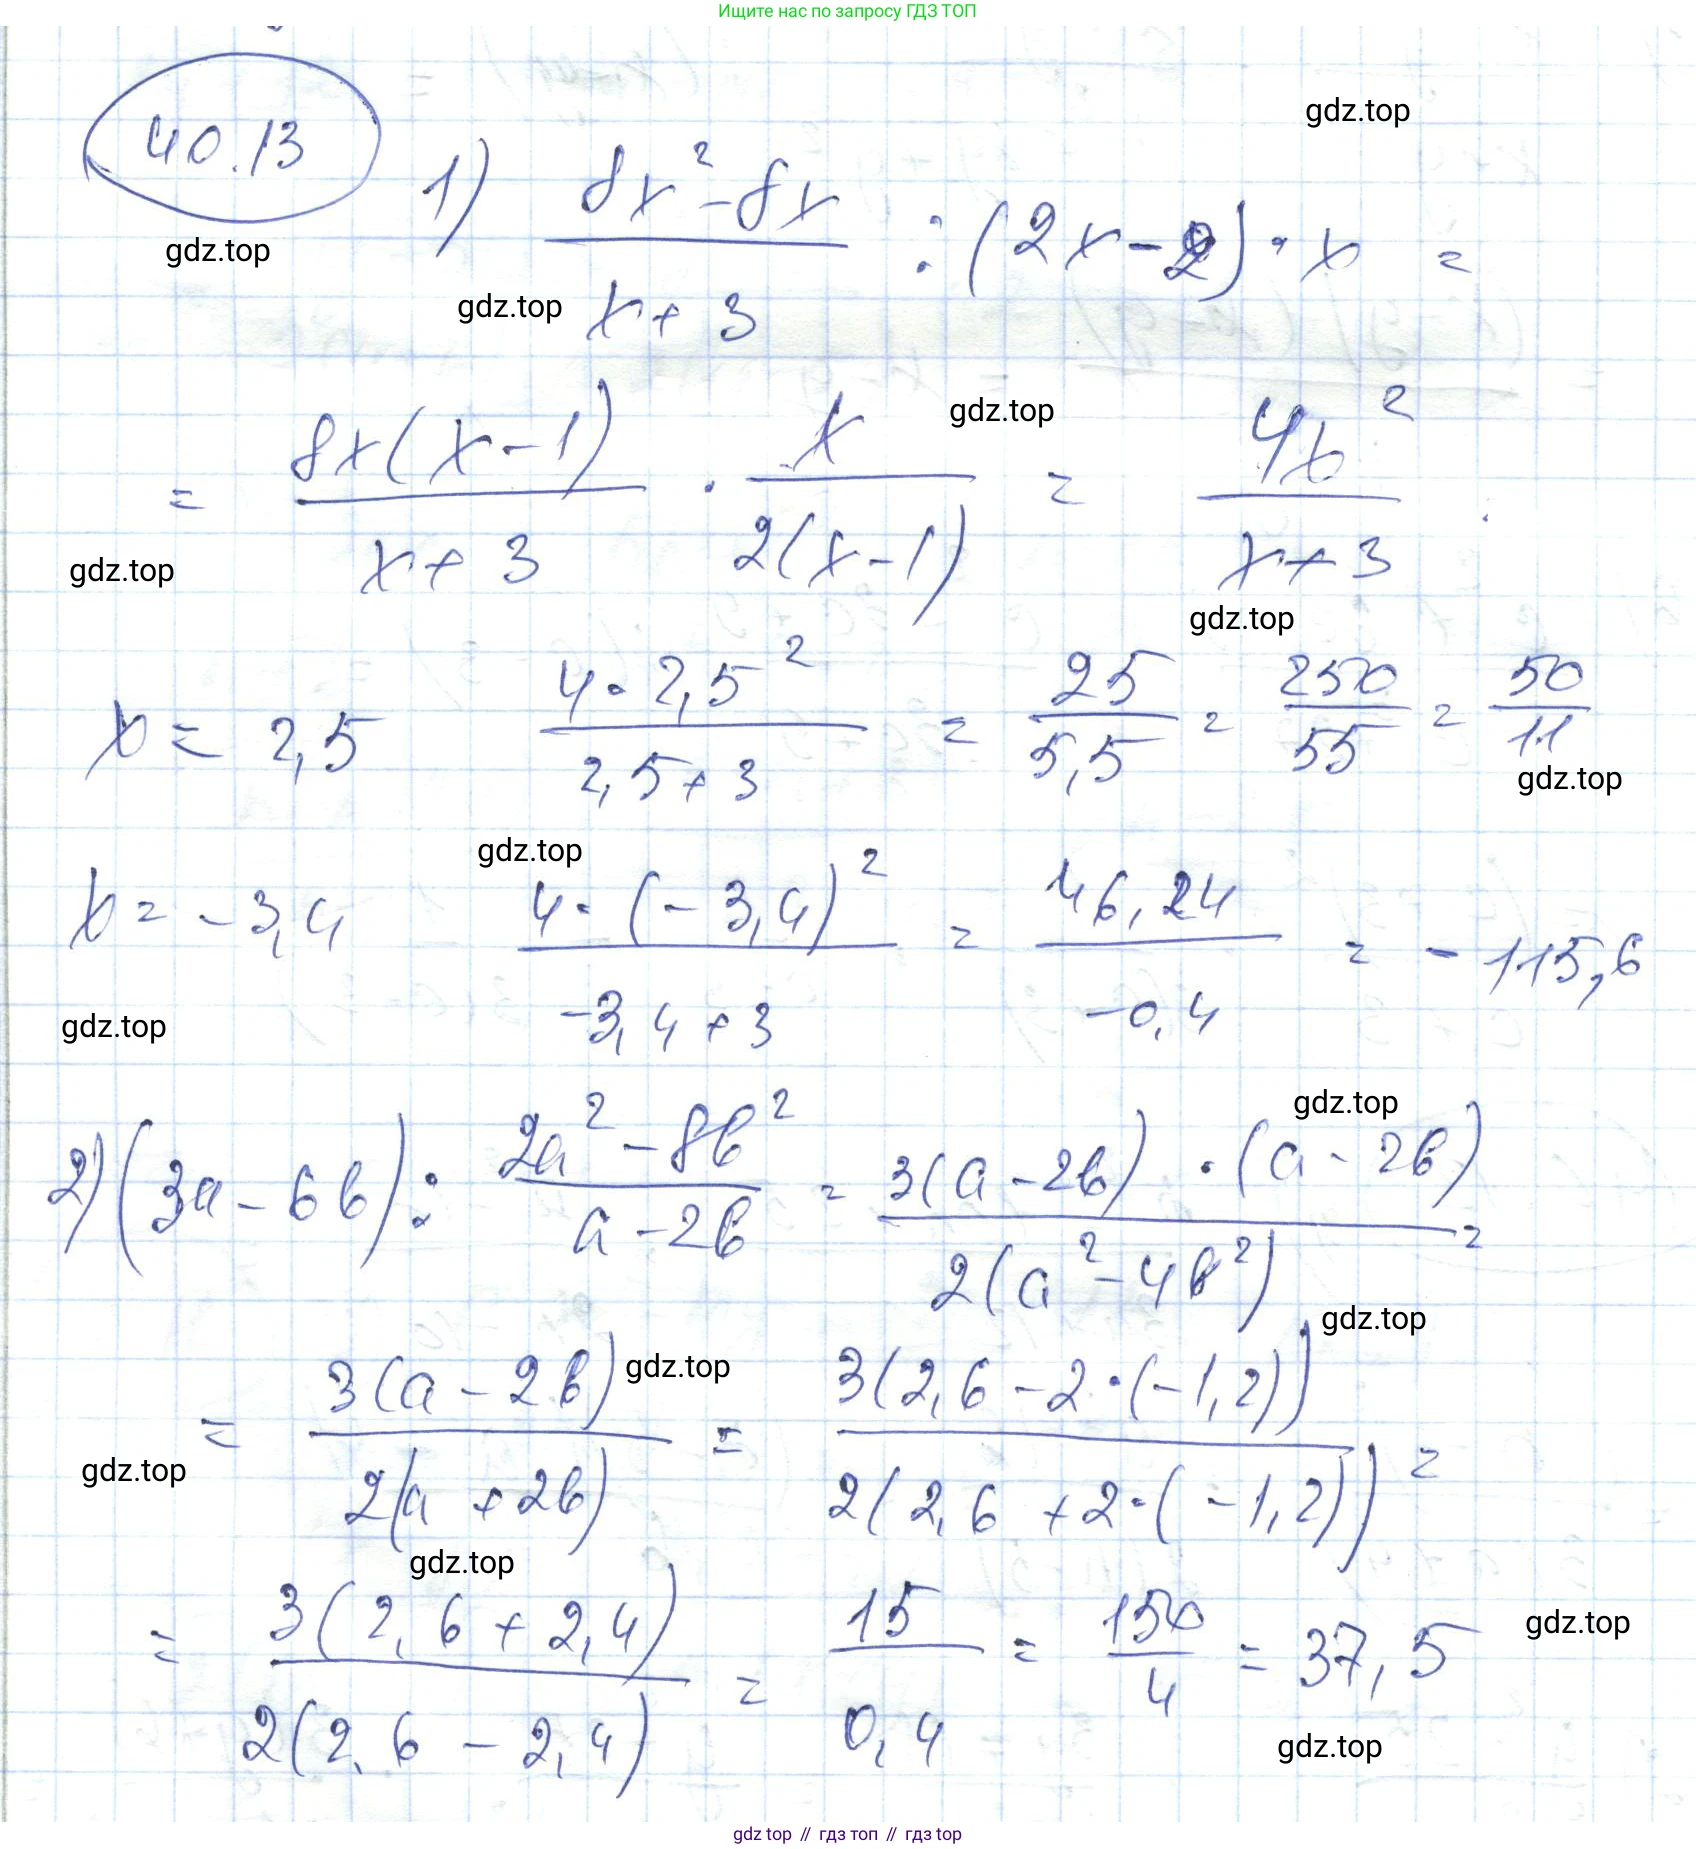 Ищите нас по запросу ГДЗ ТОП
gdz.top
40.13
1) (8x² - 8x)/(x + 3) : (2x - 2) · x =
gdz.top
gdz.top
= (8x(x - 1))/(x + 3) · x/(2(x - 1)) = 4x²/(x + 3)
gdz.top
gdz.top
gdz.top
x = 2,5 (4 · 2,5²)/(2,5 + 3) = 25/5,5 = 250/55 = 50/11
gdz.top
gdz.top
x = -3,4 (4 · (-3,4)²)/(-3,4 + 3) = 46,24/-0,4 = -115,6
gdz.top
gdz.top
2) (3a - 6b) : (2a² - 8b²)/(a - 2b) = (3(a - 2b) · (a - 2b))/(2(a² - 4b²)) =
gdz.top
gdz.top
= (3(a - 2b))/(2(a + 2b)) = (3(2,6 - 2 · (-1,2)))/(2(2,6 + 2 · (-1,2))) =
gdz.top
gdz.top
= (3(2,6 + 2,4))/(2(2,6 - 2,4)) = 15/0,4 = 150/4 = 37,5
gdz.top
gdz.top
gdz top // гдз топ // гдз top